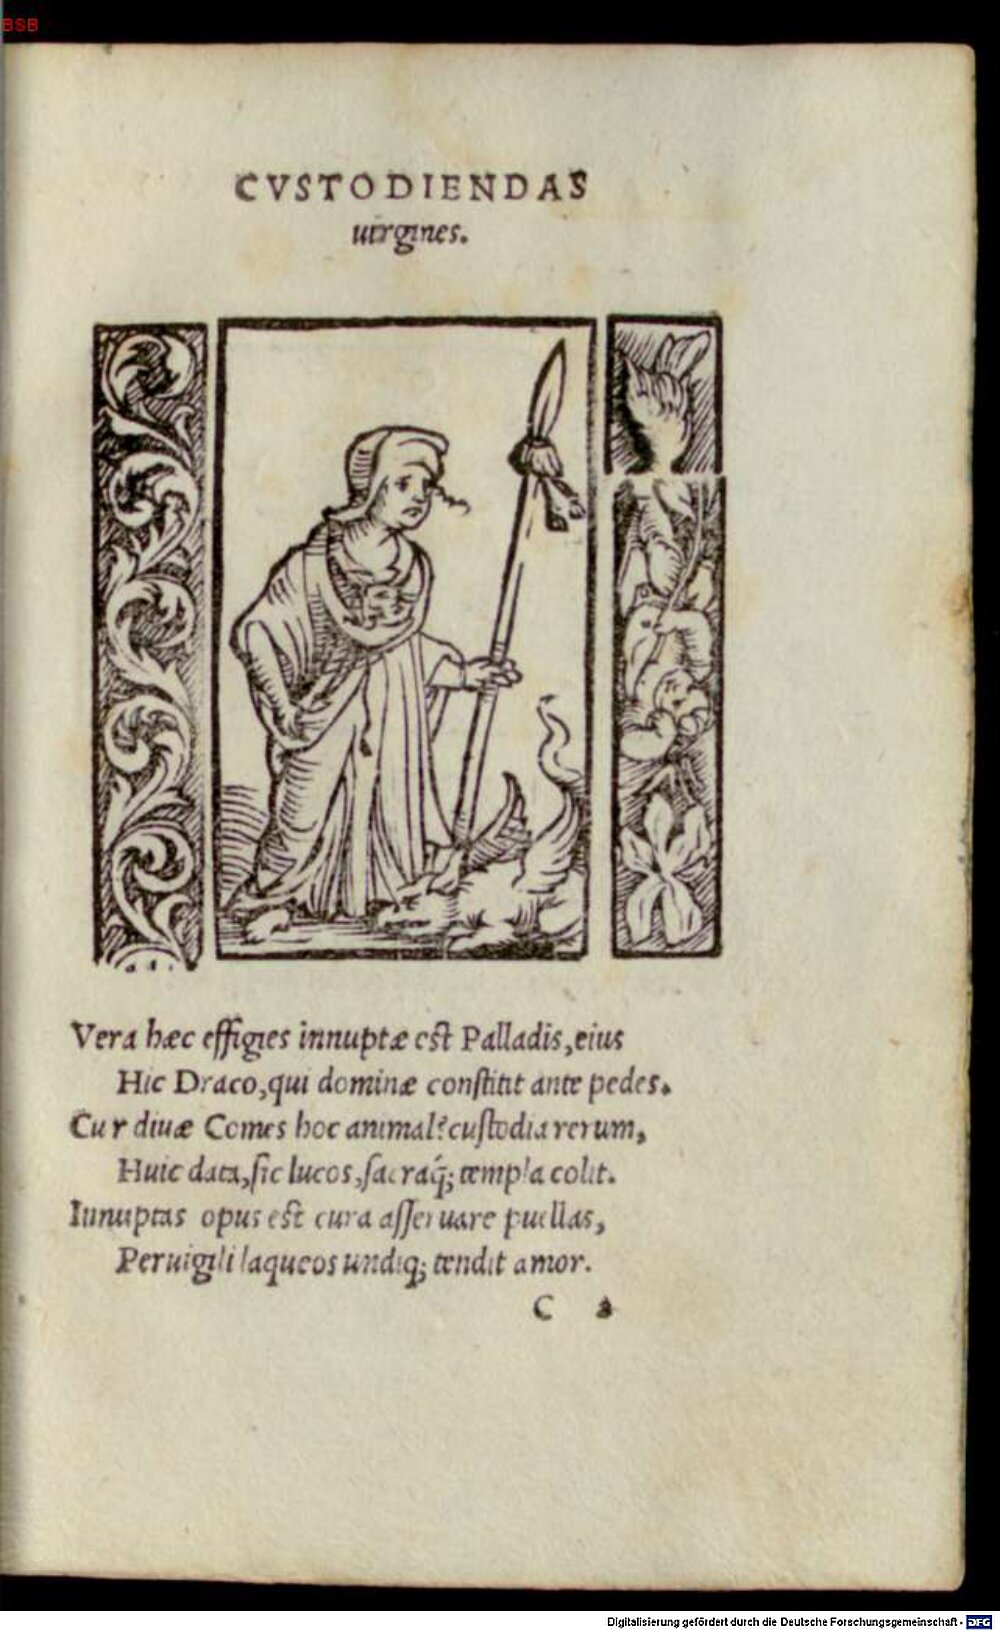 BSB
CVSTODIENDAS
uirgines.
Vera hæc effigies innuptæ est Palladis, eius
Hic Draco, qui dominæ constitit ante pedes.
Cur diuæ Comes hoc animal? custodia rerum,
Huic data, sic lucos, sacraq́; templa colit.
Innuptas opus est cura asseruare puellas,
Peruigili laqueos undiq; tendit amor.
C 2
Digitalisierung gefördert durch die Deutsche Forschungsgemeinschaft - DFG